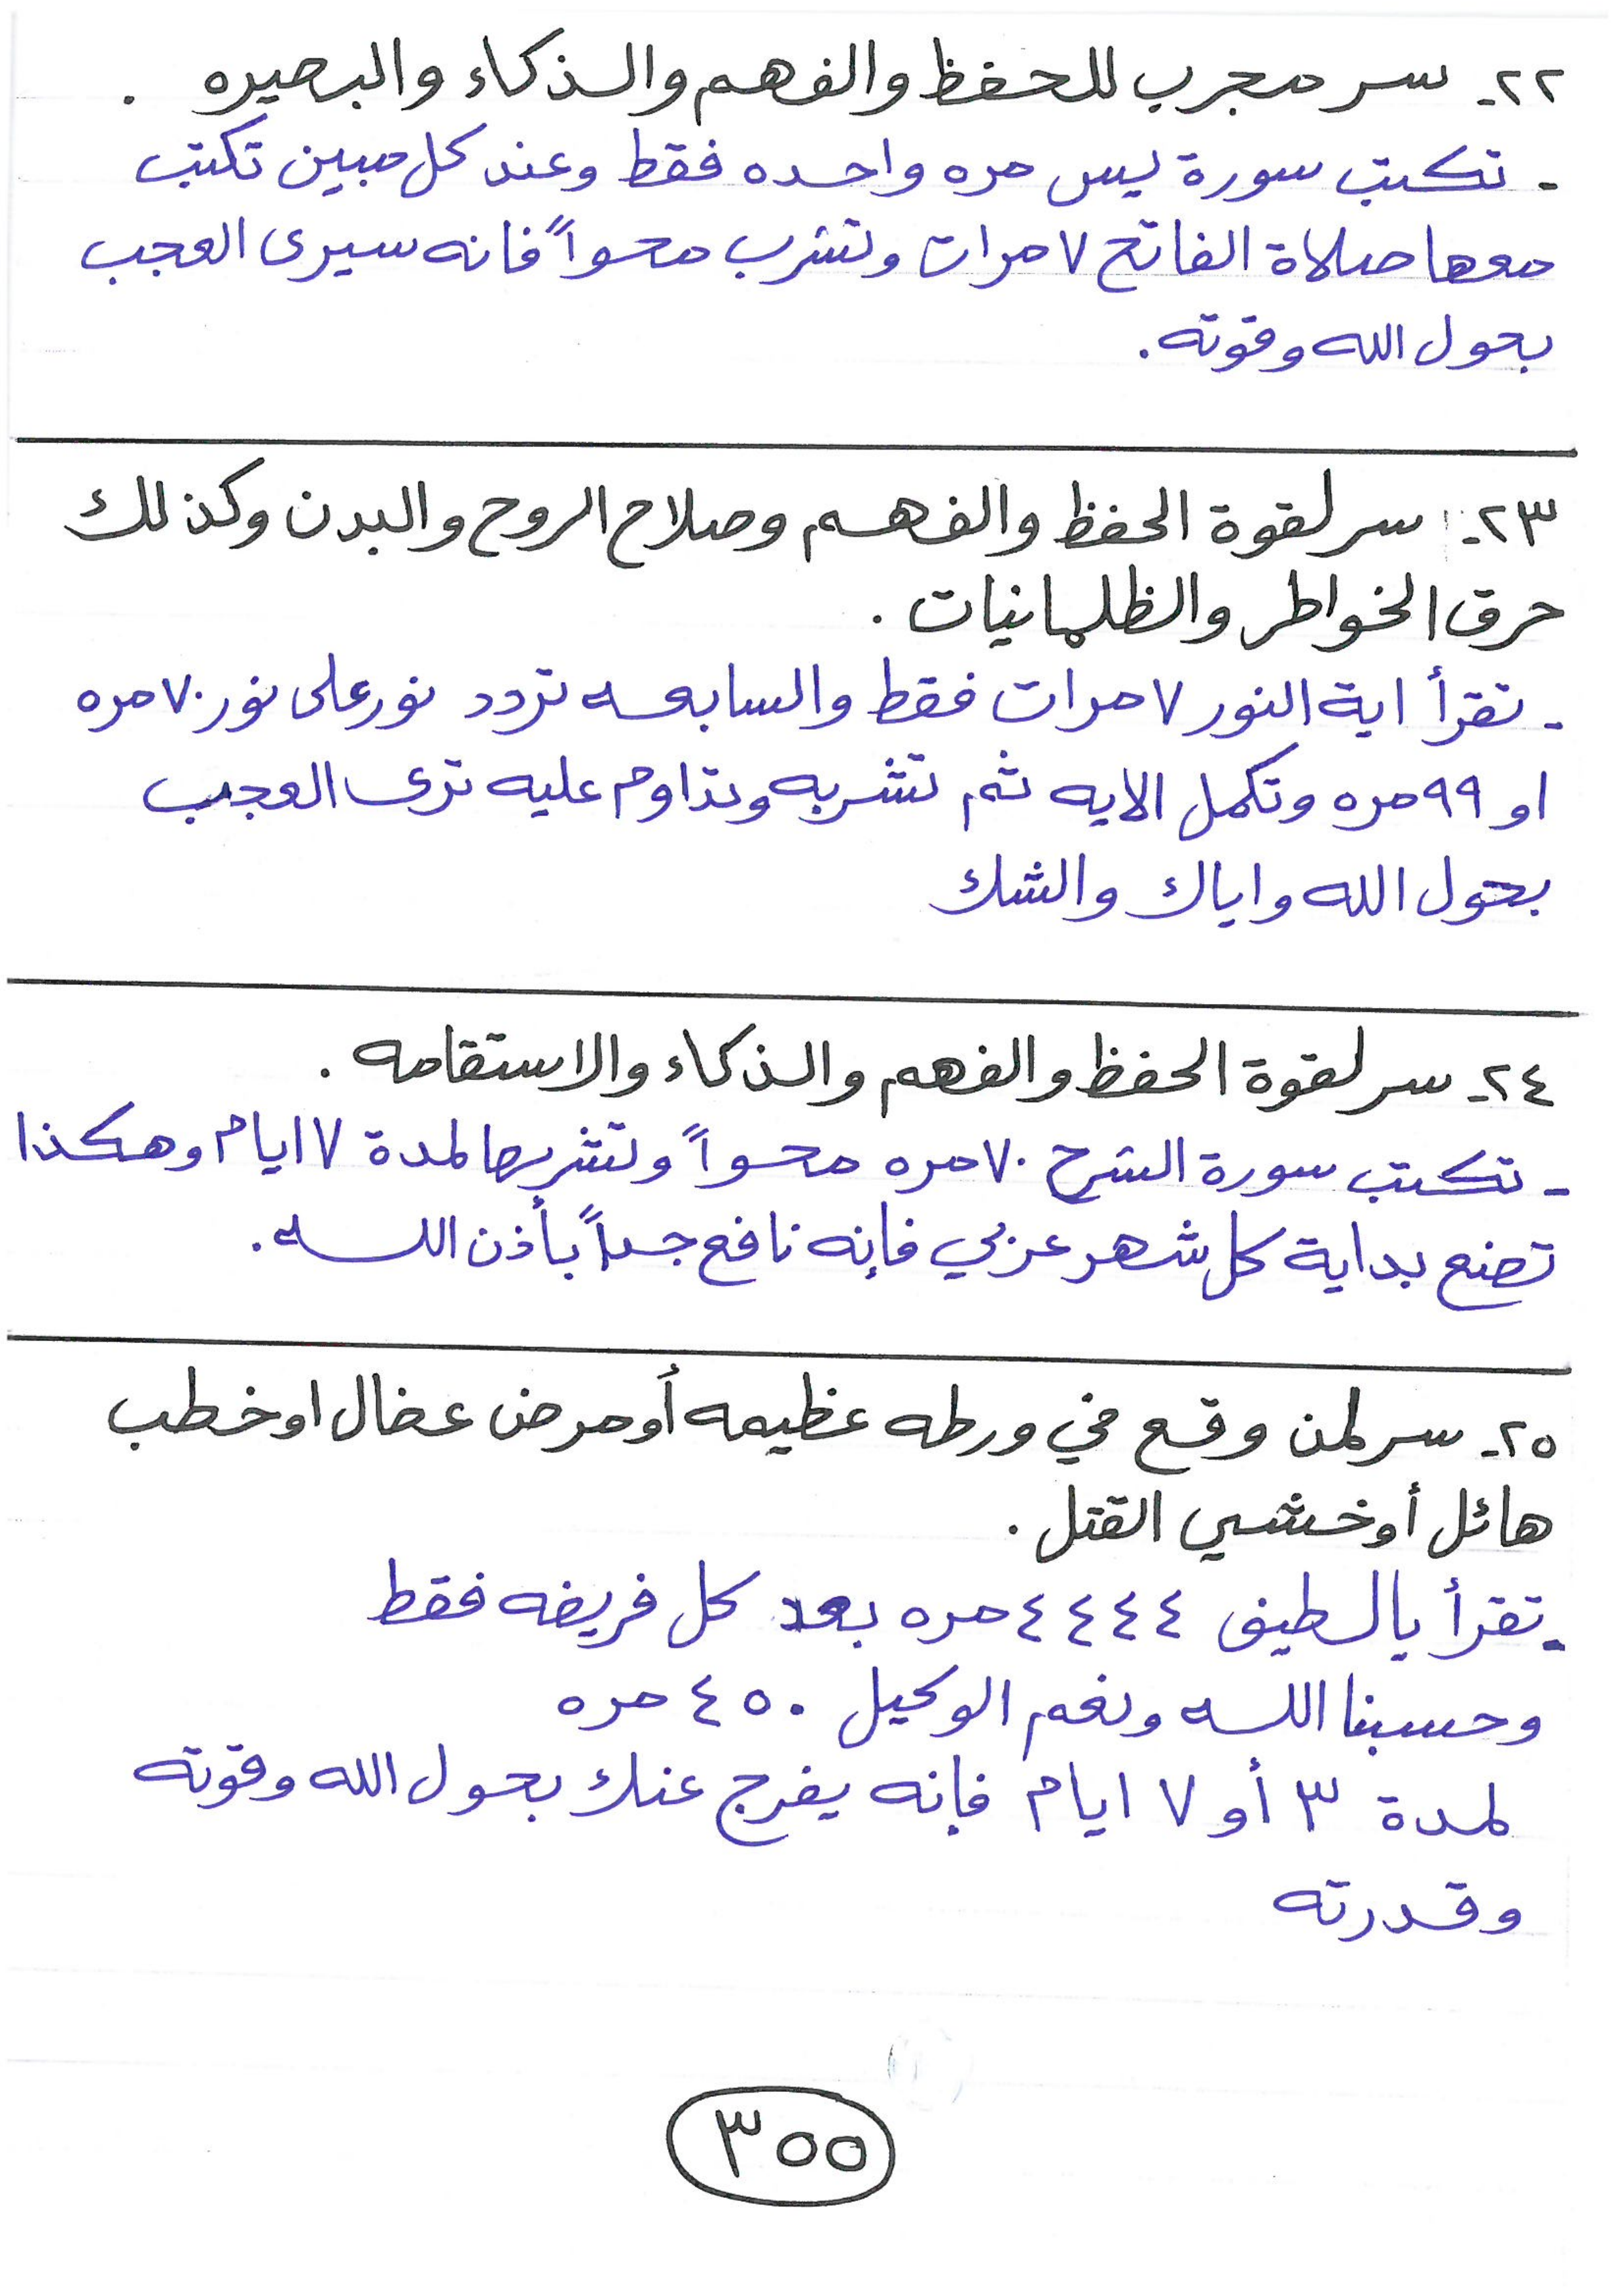 ٢٢- سر مجرب للحفظ والفهم والذكاء والبصيره .
- تكتب سورة يس مره واحده فقط وعند كل مبين تكتب
معها صلاة الفاتح ٧ مرات وتشرب محواً فانه سيرى العجب
بحول الله وقوته .
٢٣- سر لقوة الحفظ والفهم وصلاح الروح والبدن وكذلك
حرق الخواطر والظلمانيات .
- تقرأ اية النور ٧ مرات فقط والسابعه تردد نور على نور ٧٠ مره
او ٩٩ مره وتكمل الايه ثم تشربه وتداوم عليه ترى العجب
بحول الله واياك والشك
٢٤- سر لقوة الحفظ والفهم والذكاء والاستقامه .
- تكتب سورة الشرح ٧٠ مره محواً وتشربها لمدة ٧ ايام وهكذا
تصنع بداية كل شهر عربي فإنه نافع جداً بأذن الله .
٢٥- سر لمن وقع في ورطه عظيمه أو مرض عضال او خطب
هائل أو خشي القتل .
- تقرأ يالطيف ٤٤٤٤ مره بعد كل فريضه فقط
وحسبنا الله ونعم الوكيل ٤٥٠ مره
لمدة ٣ أو ٧ ايام فإنه يفرج عنك بحول الله وقوته
وقدرته
٣٥٥